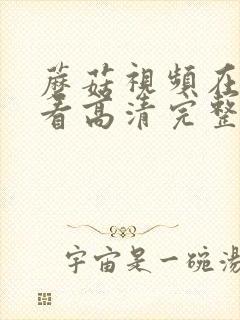 蘑菇視頻在
看高清完整
宇宙是一碗湯